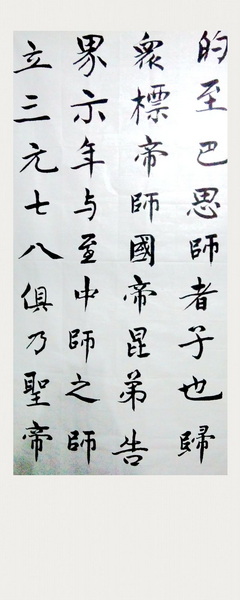 的至巴思師者子也歸
衆標帝師國帝昆弟告
界示年与至中師之師
立三元七八俱乃聖帝